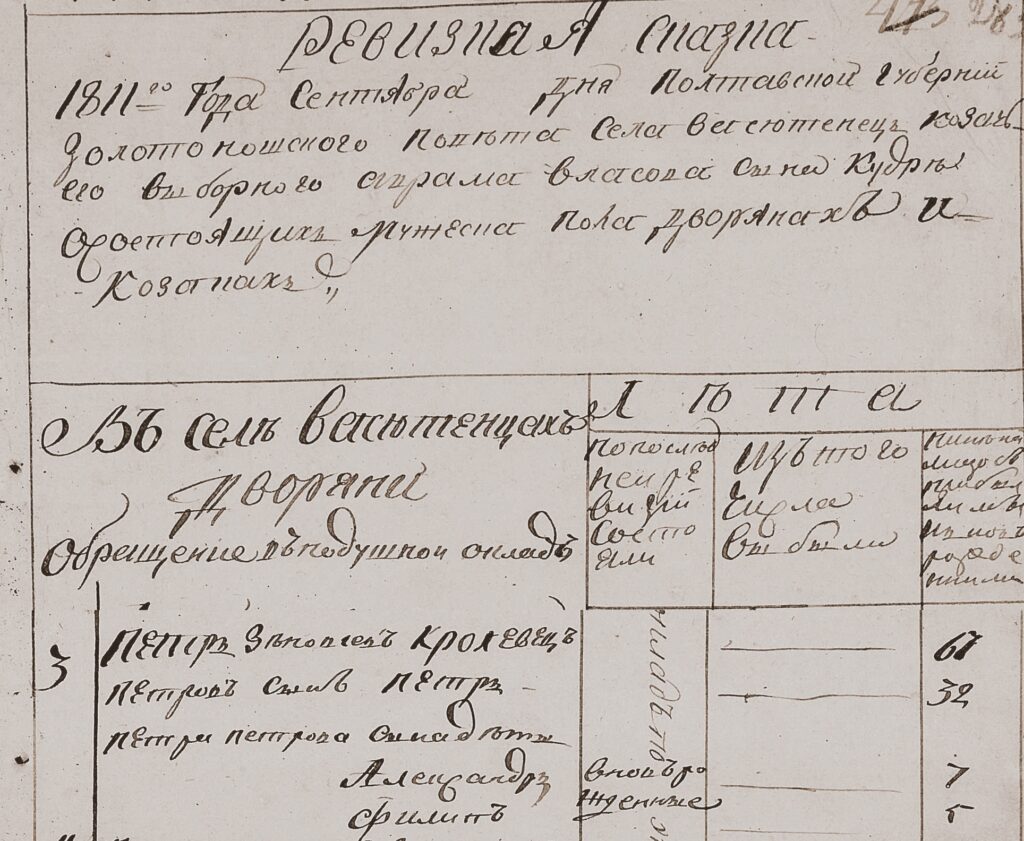 РЕВИЗНАЯ Сказка
1811го Года Сентября дня Полтавской Губерний
Золотоношского Повѣта Села Васютенецъ козачь
его выборного Аврама Власова сына Кудри
Осостоящихъ Мужеска пола дворянахъ и
Козакахъ
Въ селѣ Васютенцахъ
Дворяни
Обрещцение въподушной окладъ
Лѣта
попослѣд
ней ре
визии
состо
яли
Изътого
Числа
выбыли
3 Петръ Зѣновиевъ Кролевецъ 61
Петровъ сынъ Петръ 32
Петра петрова сына дѣти
Александръ вновъ ро 7
Филипъ жденные 5